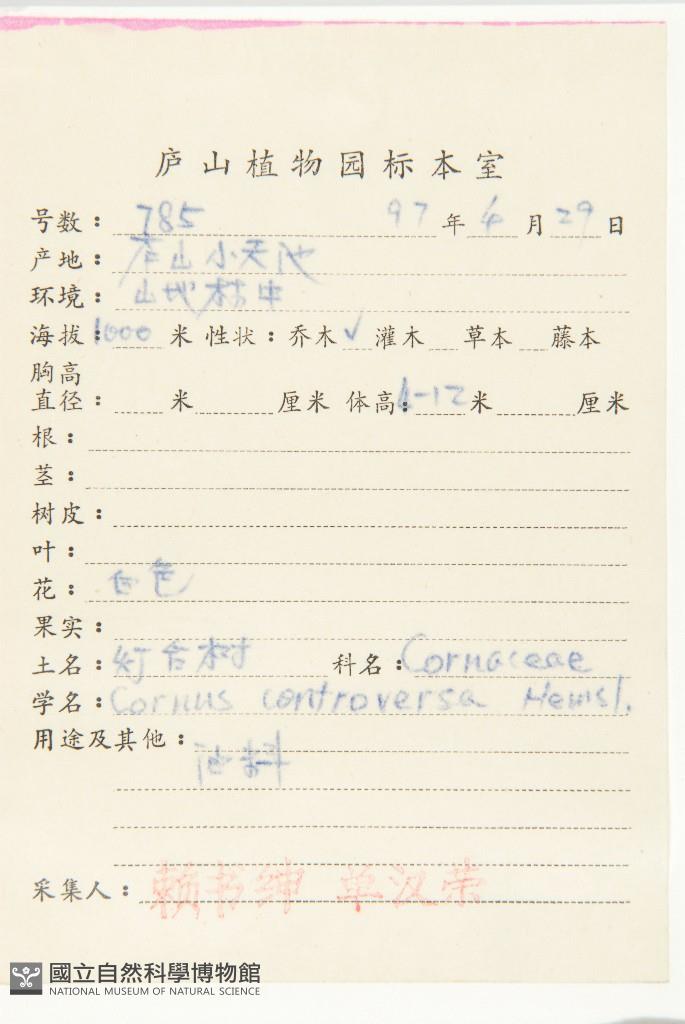 庐山植物园标本室
号数： 785 97 年 4 月 29 日
产地： 庐山小天池
环境： 山地林中
海拔 1000 米 性状：乔木 ✓ 灌木 草本 藤本
胸高
直径： 米 厘米 体高： -12 米 厘米
根：
茎：
树皮：
叶：
花： 白色
果实：
土名： 灯台树 科名： Cornaceae
学名： Cornus controversa Hemsl.
用途及其他：
油料
采集人： 赖书绅 单汉荣
國立自然科學博物館
NATIONAL MUSEUM OF NATURAL SCIENCE